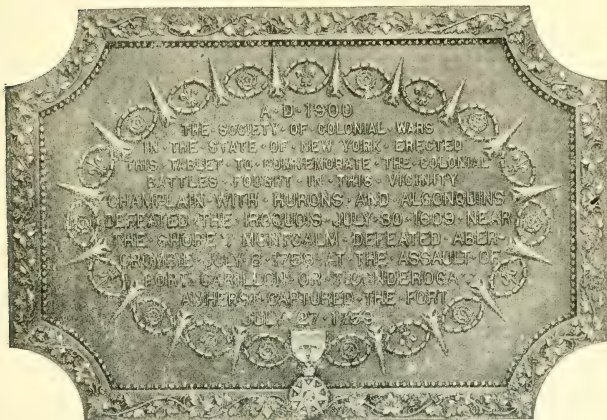 A·D·1900
THE·SOCIETY·OF·COLONIAL·WARS
IN·THE·STATE·OF·NEW·YORK·ERECTED
THIS·TABLET·TO·COMMEMORATE·THE·COLONIAL
BATTLES·FOUGHT·IN·THIS·VICINITY
CHAMPLAIN·WITH·HURONS·AND·ALGONQUINS
DEFEATED·THE·IROQUOIS·JULY·30·1609·NEAR
THE·SHORE·MONTCALM·DEFEATED·ABER-
CROMBIE·JULY·8·1758·AT·THE·ASSAULT·OF
FORT·CARILLON·OR·TICONDEROGA
AMHERST·CAPTURED·THE·FORT
JULY·27·1759